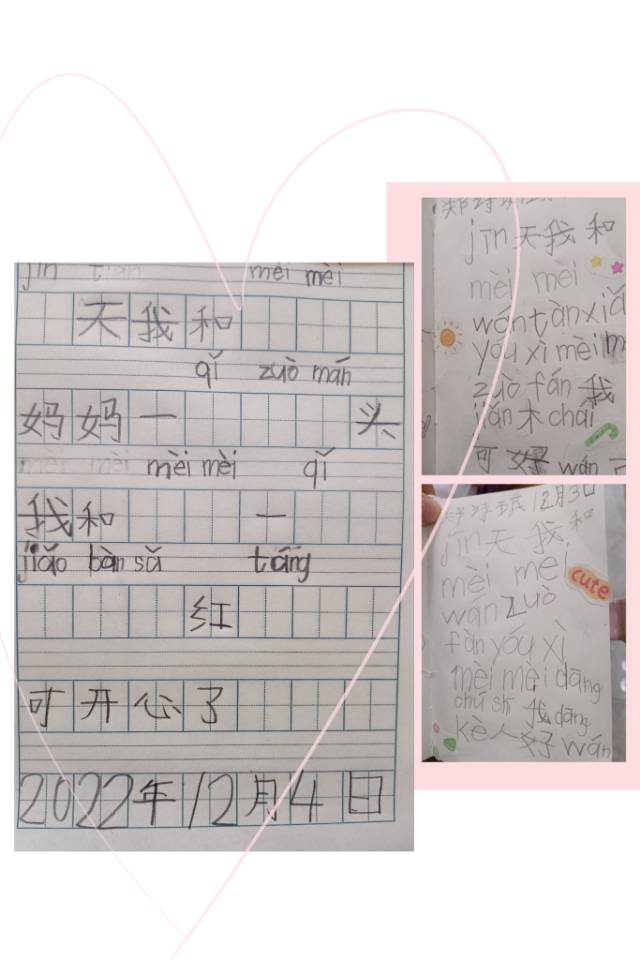 jīn tiān mèi mèi
天我和
qǐ zuò mán
妈妈一 头
mèi mèi mèi mèi qǐ
我和 一
jiǎo bàn sǎ táng
红
可开心了
2022年12月4日
jīn天我和
mèi mei
wán tàn xiǎ
yóu xì mèi m
zuò fán 我
jiǎn木chái
可好wán
12月3日
jīn天我和
mèi mei
wán zuò
fàn yóu xì
mèi mèi dāng
chú shī 我dāng
kè人好wán
cute